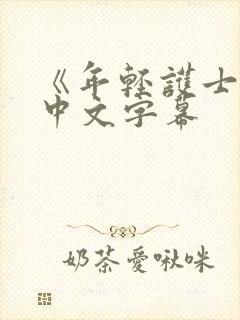 《年輕護士
中文字幕
奶茶愛啾咪